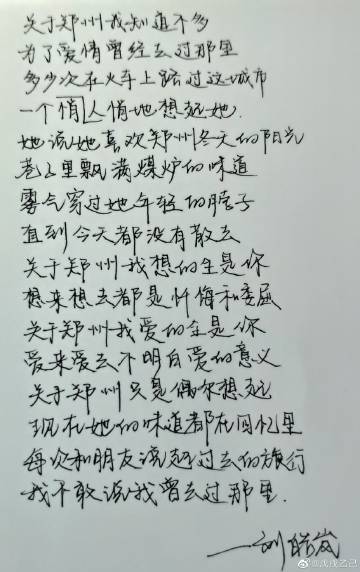 关于郑州我知道不多
为了爱情曾经去过那里
多少次在火车上路过这城市
一个人悄悄地想起她
她说她喜欢郑州冬天的阳光
巷子里飘满煤炉的味道
雾气穿过她年轻的脖子
直到今天都没有散去
关于郑州我想的全是你
想来想去都是忏悔和委屈
关于郑州我爱的全是你
爱来爱去不明白爱的意义
关于郑州只是偶尔想起
现在她的味道都在回忆里
每次和朋友说起过去的旅行
我不敢说我曾去过那里.
——刘皓岚
@戊戌乙己